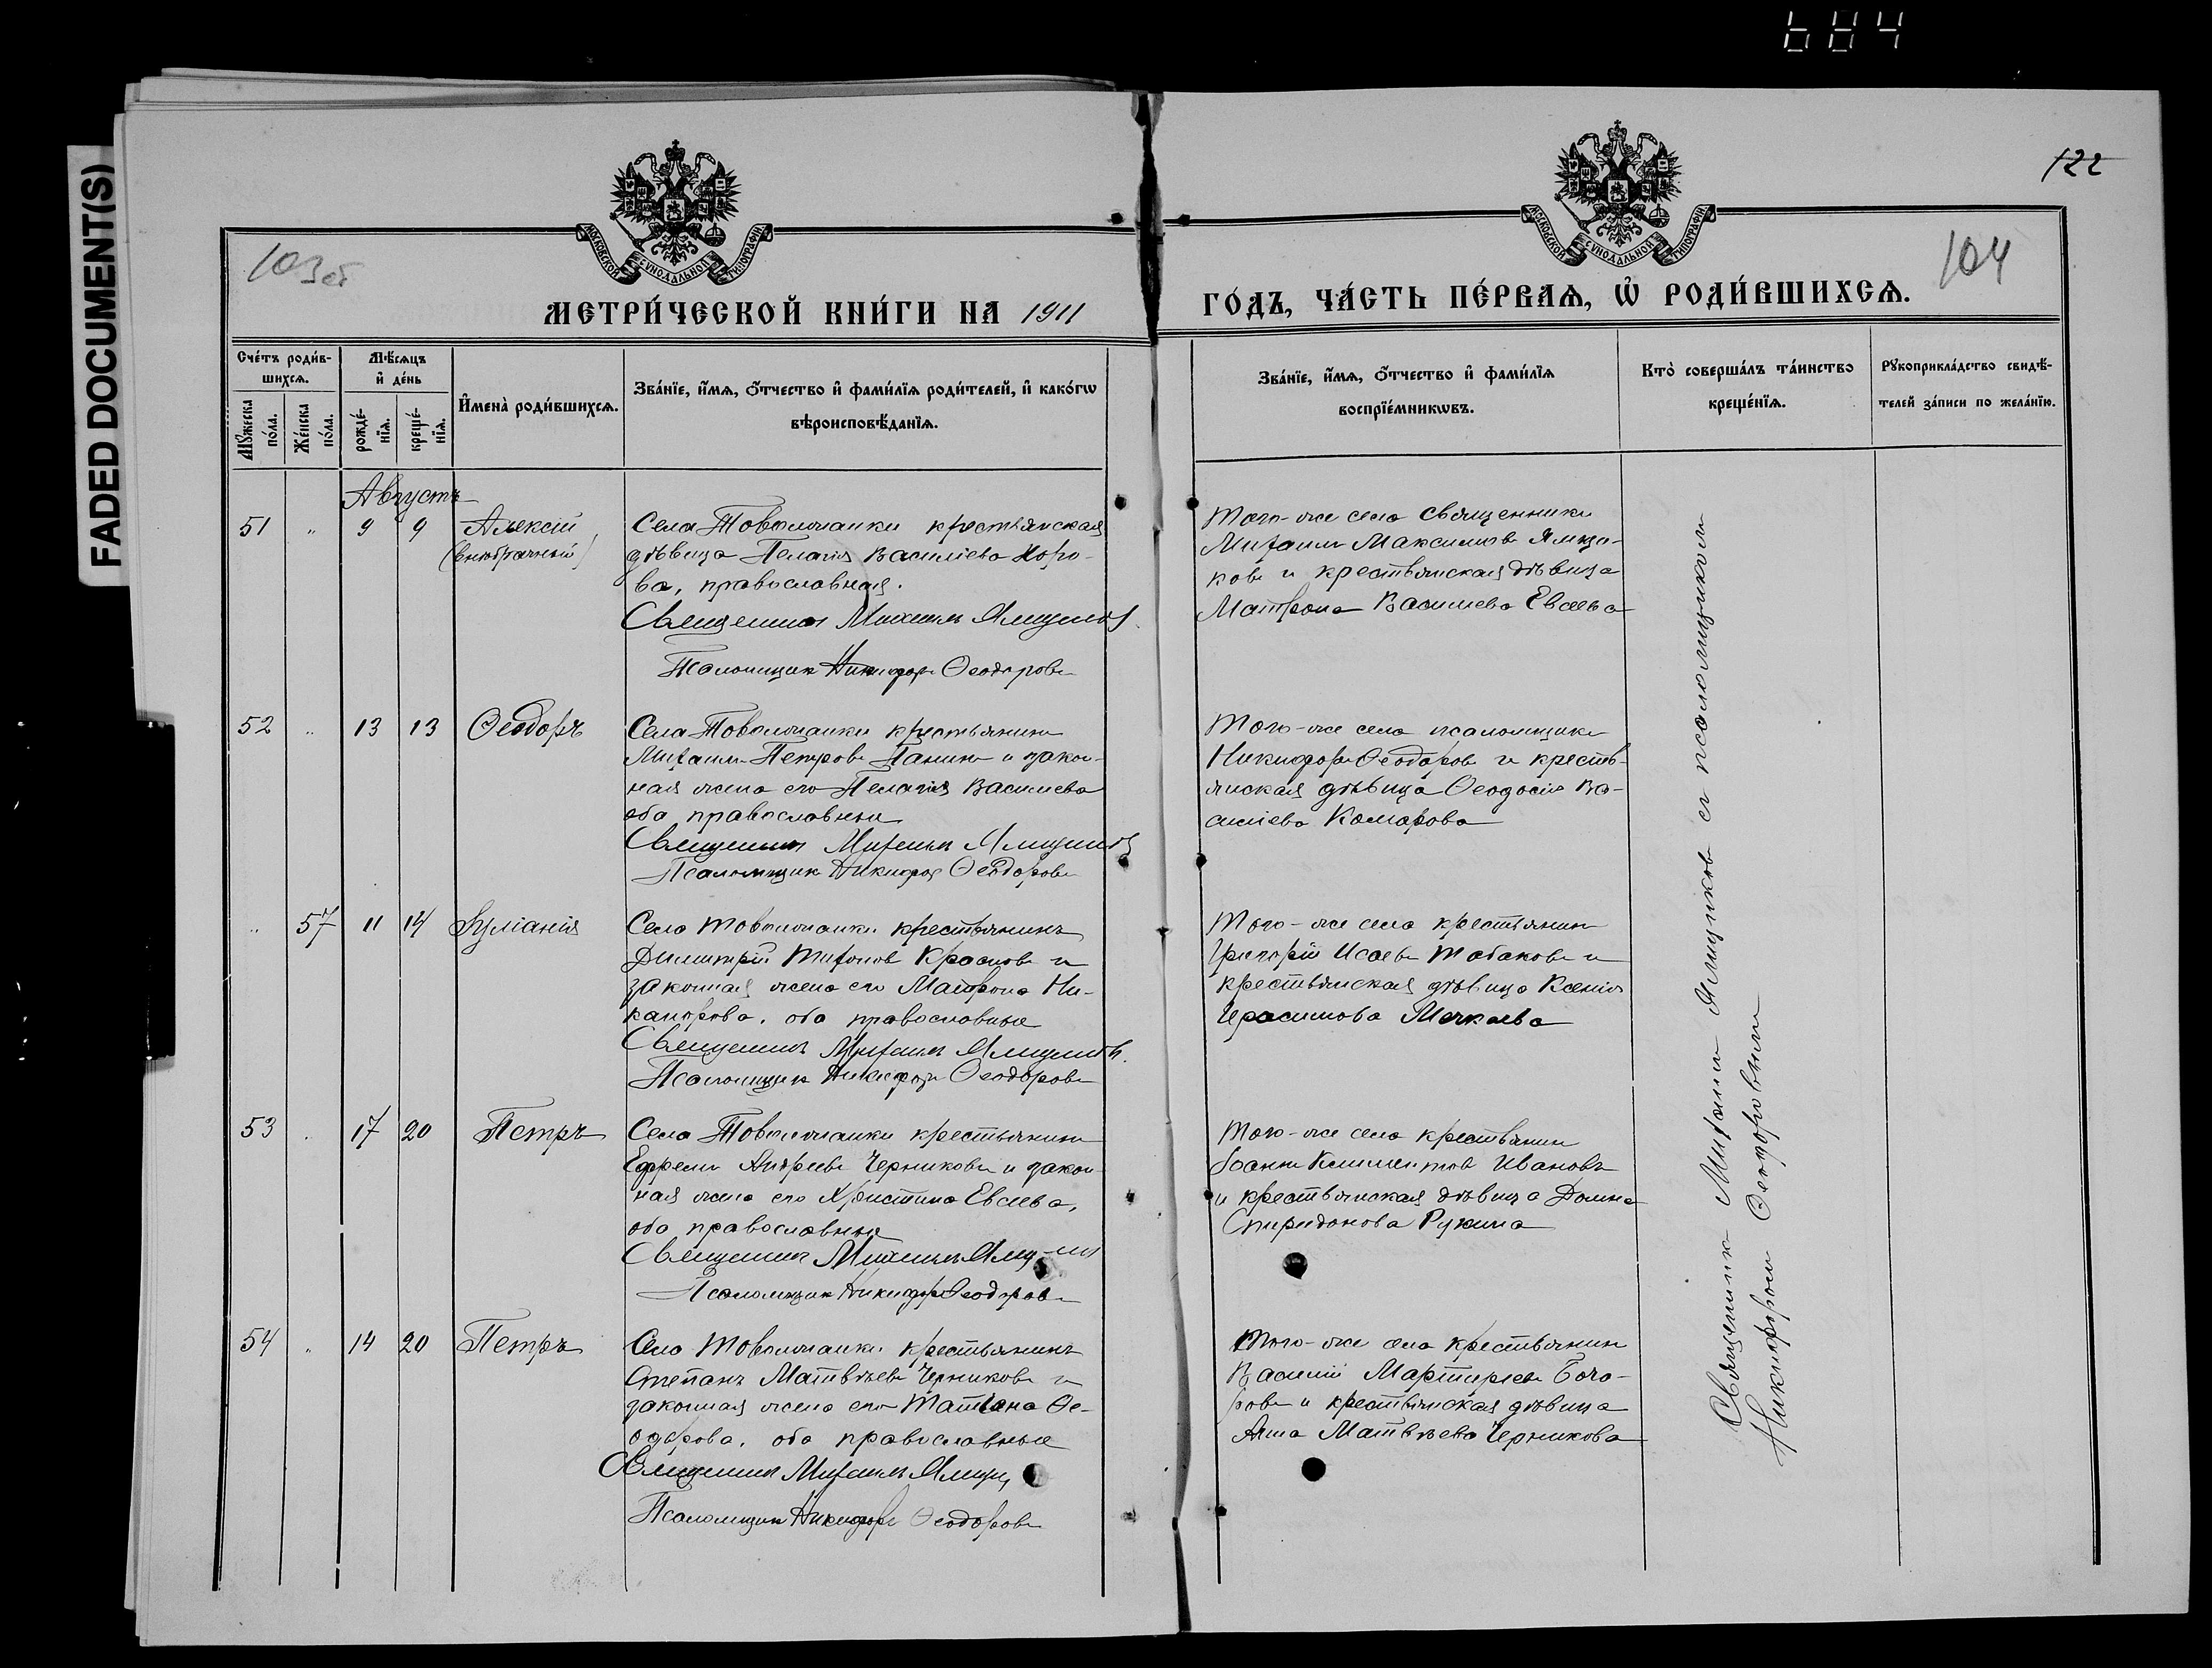 684
FADED DOCUMENT(S)
122
103 об
104
МОСКОВСКОЙ СУНОДАЛЬНОЙ ТИПОГРАФІИ
МОСКОВСКОЙ СУНОДАЛЬНОЙ ТИПОГРАФІИ
МЕТРИ́ЧЕСКОЙ КНИ́ГИ НА 1911
ГО́ДЪ, ЧА́СТЬ ПЕ́РВАѦ, Ѽ РОДИ́ВШИХСѦ.
Сче́тъ роди́в-
шихсѧ.
Мꙋ́жеска по́ла.
Же́нска по́ла.
Мѣ́сѧцъ и҆ де́нь
рожде́-нїѧ.
креще́-нїѧ.
И҆мена̀ роди́вшихсѧ.
Зва́нїе, и҆́мѧ, ѻ҆́тчество и҆ фами́лїѧ роди́телей, и҆ како́гѡ
вѣроисповѣ́данїѧ.
Зва́нїе, и҆́мѧ, ѻ҆́тчество и҆ фами́лїѧ
воспрїе́мникѡвъ.
Кто̀ соверша́лъ та́инство
креще́нїѧ.
Рꙋкоприкла́дство свидѣ́-
телей за́писи по жела́нїю.
Августъ
51 " 9 9 Алексій
(внѣбрачный)
Села Товолжанки крестьянская
дѣвица Пелагія Василіева
ва, православная.
Священникъ Михаилъ Ямщиковъ
Псаломщикъ Никифоръ Ѳеодоровъ
Того-же села священникъ
Михаилъ Максимовъ Ямщи-
ковъ и крестьянская дѣвица
Матрона Василиева Евсеева
52 " 13 13 Ѳеодоръ
Села Товолжанки крестьянинъ
Михаилъ Петровъ Панинъ и закон-
ная жена его Пелагія Василиева
оба православные
Священникъ Михаилъ Ямщиковъ
Псаломщикъ Никифоръ Ѳеодоровъ
Того-же села псаломщикъ
Никифоръ Ѳеодоровъ и кресть-
янская дѣвица Ѳеодосія Ва-
силіева Комарова
" 57 11 14 Іуліанія
Села Товолжанки крестьянинъ
Димитрій Тихоновъ Красновъ и
законная жена его Матрона Ни-
канорова, оба православные
Священникъ Михаилъ Ямщиковъ
Псаломщикъ Никифоръ Ѳеодоровъ
Того-же села крестьянинъ
Григорій Исаевъ Табаковъ и
крестьянская дѣвица Ксенія
Герасимова
53 " 17 20 Петръ
Села Товолжанки крестьянинъ
Ефремъ Андреевъ Черниковъ и закон-
ная жена его Христина Евсеева,
оба православные
Священникъ Михаилъ
Псаломщикъ Никифоръ Ѳеодоровъ
Того-же села крестьянинъ
Іоаннъ Климентовъ Ивановъ
и крестьянская дѣвица Домна
Спиридонова Рукина
54 " 14 20 Петръ
Села Товолжанки крестьянинъ
Степанъ Матвѣевъ Черниковъ и
законная жена его Татіана Ѳе-
одорова, оба православные
Священникъ Михаилъ
Псаломщикъ Никифоръ Ѳеодоровъ
Того-же села крестьянинъ
Василій
ровъ и крестьянская дѣвица
Анна Матвѣева Черникова
Священникъ Михаилъ Ямщиковъ съ псаломщикомъ
Никифоромъ Ѳеодоровымъ